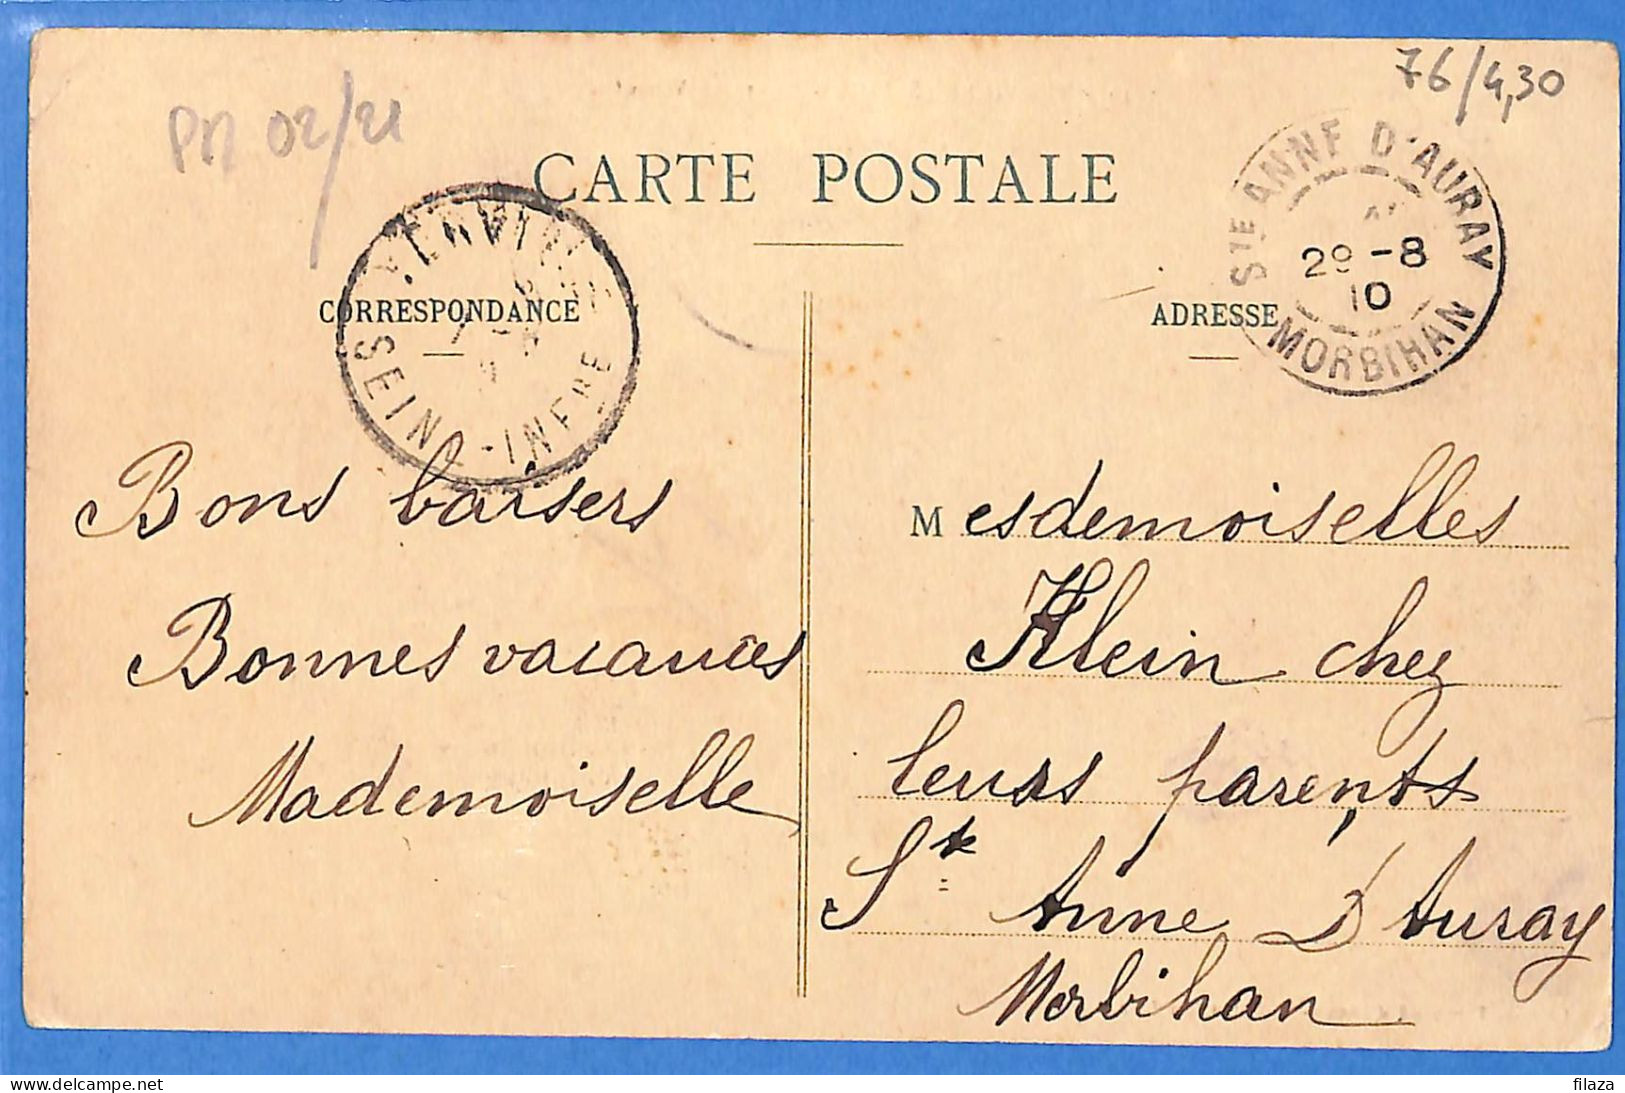 76/4,30
PM 02/21
CARTE POSTALE
STE ANNE D'AURAY
29-8
10
MORBIHAN
SEINE-INFRE
CORRESPONDANCE
ADRESSE
Bons baisers
Bonnes vacances
Mademoiselle
Mesdemoiselles
Klein chez
leurs parents
Ste Anne D'Auray
Morbihan
filaza